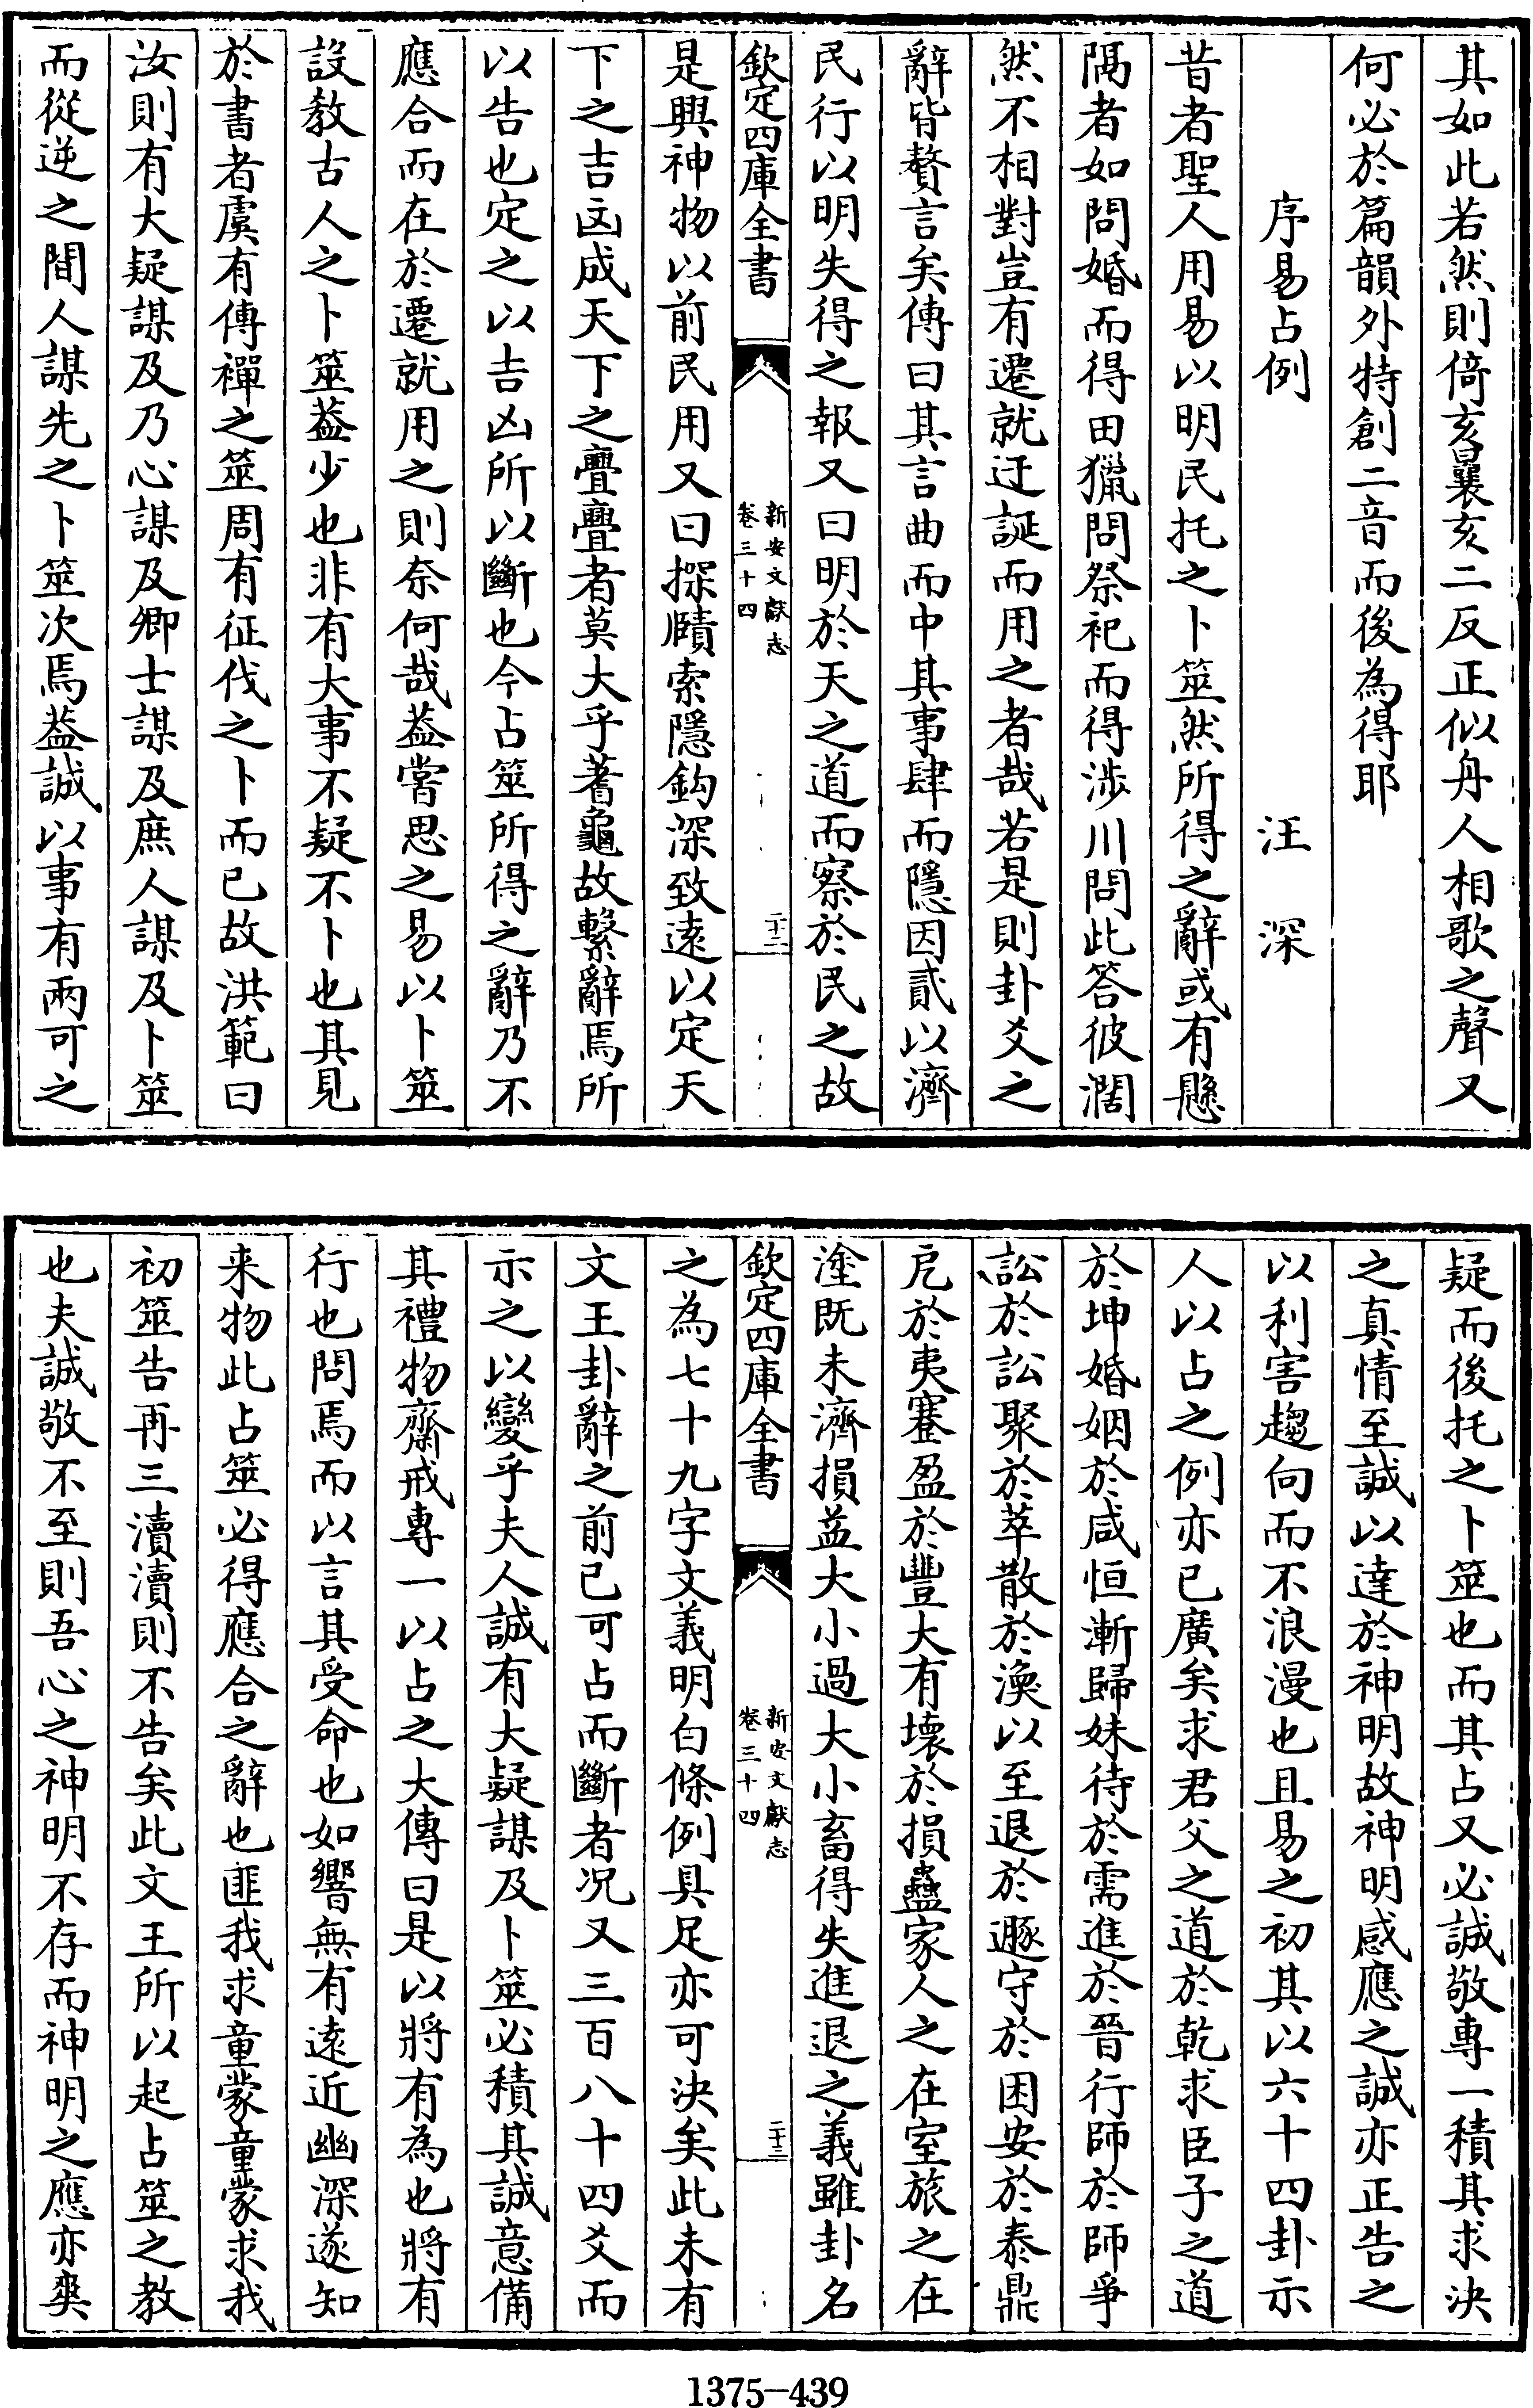 其如此若然則倚亥曩亥二反正似舟人相歌之聲又
何必於篇韻外特創二音而後為得耶
序易占例　汪　深
昔者聖人用易以明民托之卜筮然所得之辭或有懸
隔者如問婚而得田獵問祭祀而得涉川問此答彼濶
然不相對豈有遷就迂誕而用之者哉若是則卦爻之
辭皆贅言矣傳曰其言曲而中其事肆而隱因貳以濟
民行以明失得之報又曰明於天之道而察於民之故
欽定四庫全書
新安文獻志
卷三十四
二十二
是興神物以前民用又曰探賾索隱鈎深致遠以定天
下之吉凶成天下之亹亹者莫大乎蓍龜故繫辭焉所
以告也定之以吉凶所以斷也今占筮所得之辭乃不
應合而在於遷就用之則奈何哉葢嘗思之易以卜筮
設教古人之卜筮葢少也非有大事不疑不卜也其見
於書者虞有傳禪之筮周有征伐之卜而已故洪範曰
汝則有大疑謀及乃心謀及卿士謀及庶人謀及卜筮
而從逆之間人謀先之卜筮次焉葢誠以事有兩可之
疑而後托之卜筮也而其占又必誠敬專一積其求決
之真情至誠以達於神明故神明感應之誠亦正告之
以利害趨向而不浪漫也且易之初其以六十四卦示
人以占之例亦已廣矣求君父之道於乾求臣子之道
於坤婚姻於咸恒漸歸妹待於需進於晉行師於師爭
訟於訟聚於萃散於渙以至退於遯守於困安於泰鼎
戹於夷蹇盈於豐大有壞於損蠱家人之在室旅之在
塗既未濟損益大小過大小畜得失進退之義雖卦名
欽定四庫全書
新安文獻志
卷三十四
二十三
之為七十九字文義明白條例具足亦可決矣此未有
文王卦辭之前已可占而斷者况又三百八十四爻而
示之以變乎夫人誠有大疑謀及卜筮必積其誠意備
其禮物齋戒專一以占之大傳曰是以將有為也將有
行也問焉而以言其受命也如響無有遠近幽深遂知
来物此占筮必得應合之辭也匪我求童蒙童蒙求我
初筮告再三瀆瀆則不告矣此文王所以起占筮之教
也夫誠敬不至則吾心之神明不存而神明之應亦爽
1375—439